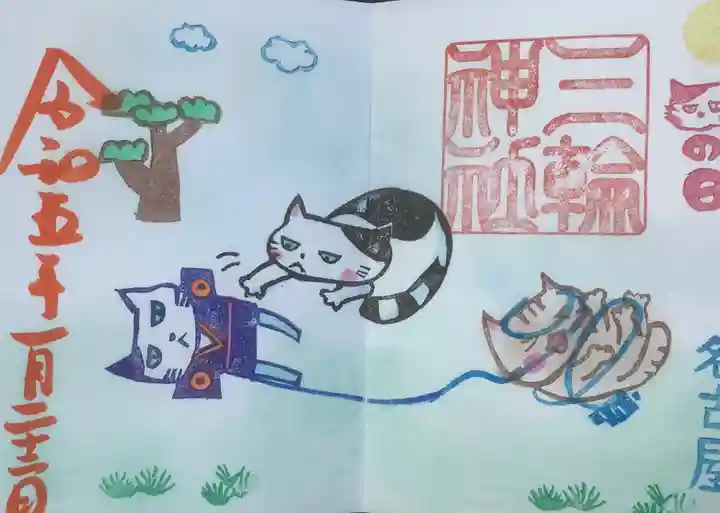 の日
名古屋
三輪
神社
令和五年一月二十二日